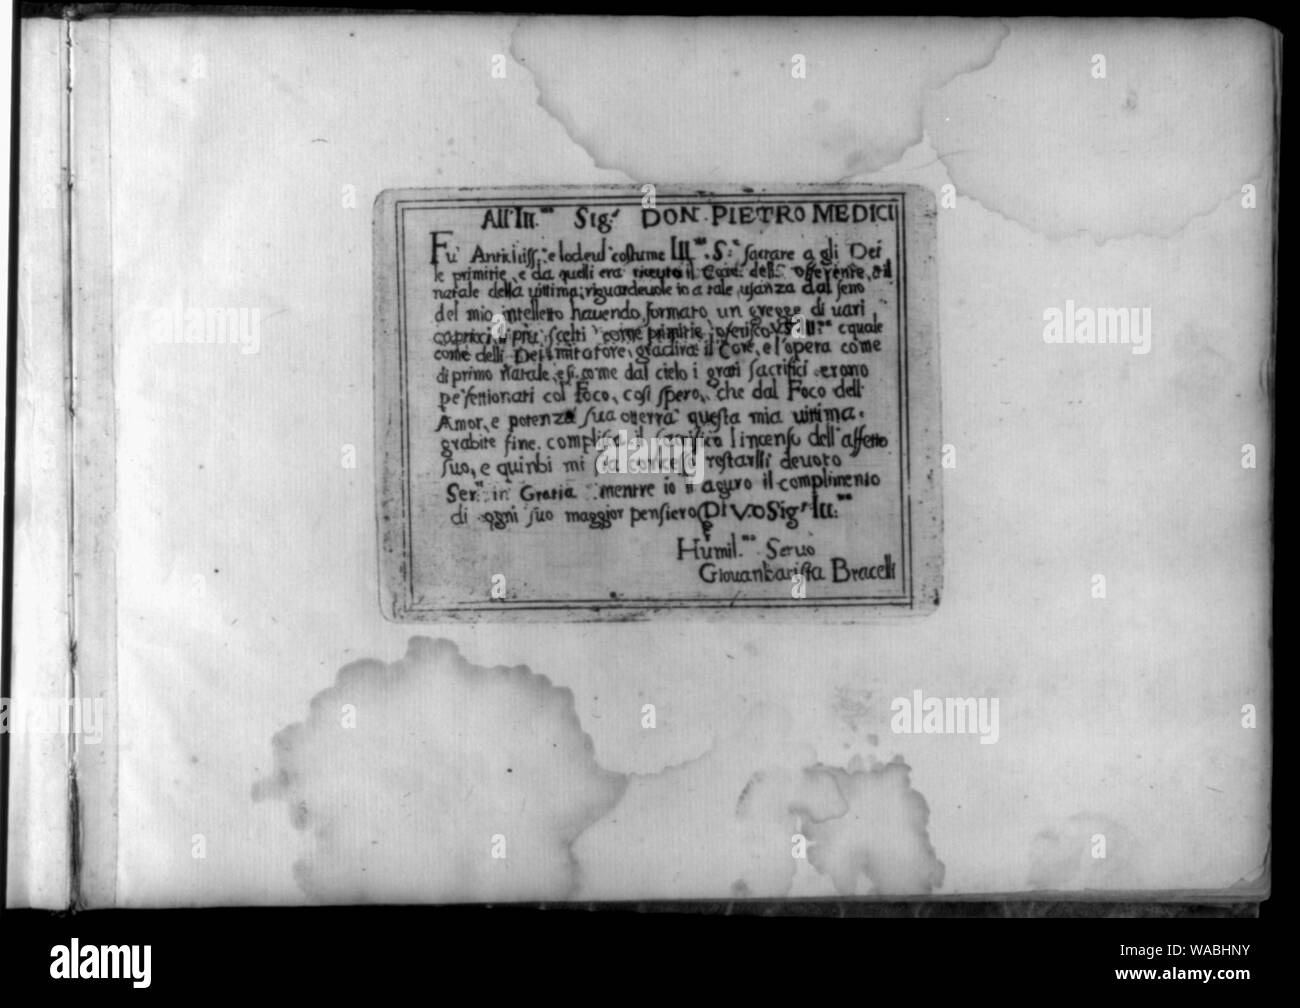 All' Ill.mo Sig.r DON PIETRO MEDICI
Fu' Antichiss.o e lodeul' costume Ill.mo S.r sacrare a gli Dei
le primitie, e da quelli era riceuto il Core dell' offerente, e il
natale della uittima; riguardeuole io a tale usanza dal seno
del mio intelletto hauendo formato un gregge di uari
capricci, i piu scelti come primitie offerisco V.S. Ill.ma e quale
come delli Dei imitatore, gradirà il Core, e l'opera come
di primo Natale, e si come dal cielo i grati sacrifici erano
perfettionati col Foco, così spero, che dal Foco dell'
Amor, e potenza sua otterrà questa mia uittima
grabite fine. complisca il sacrifico l'incenso dell' affetto
suo, e quinbi mi sia concesso restarlli deuoto
Ser.re in Gratia mentre io li aguro il complimento
di ogni suo maggior pensiero Di V.S. Sig.r Ill.mo
Humil.mo Seruo
Giouanbatista Bracelli
alamy
alamy
alamy
alamy
alamy
Image ID: WABHNY
www.alamy.com